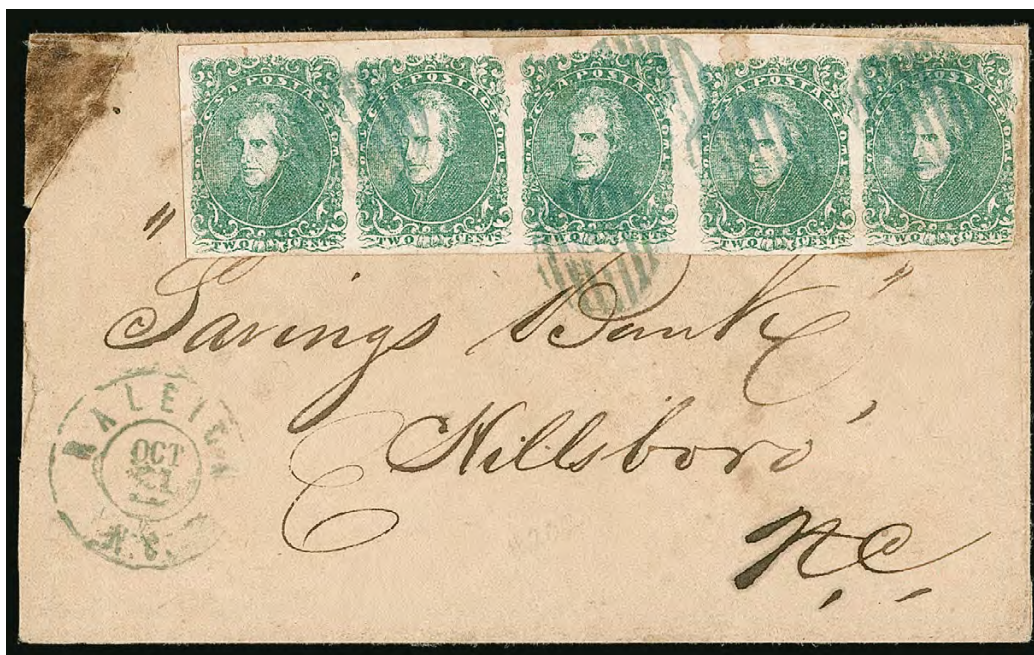 C.S.A. POSTAGE TWO TWO CENTS
C.S.A. POSTAGE TWO TWO CENTS
C.S.A. POSTAGE TWO TWO CENTS
C.S.A. POSTAGE TWO TWO CENTS
C.S.A. POSTAGE TWO TWO CENTS
"Savings Bank"
Hillsboro'
N.C.
RALEIGH
OCT
N.C.